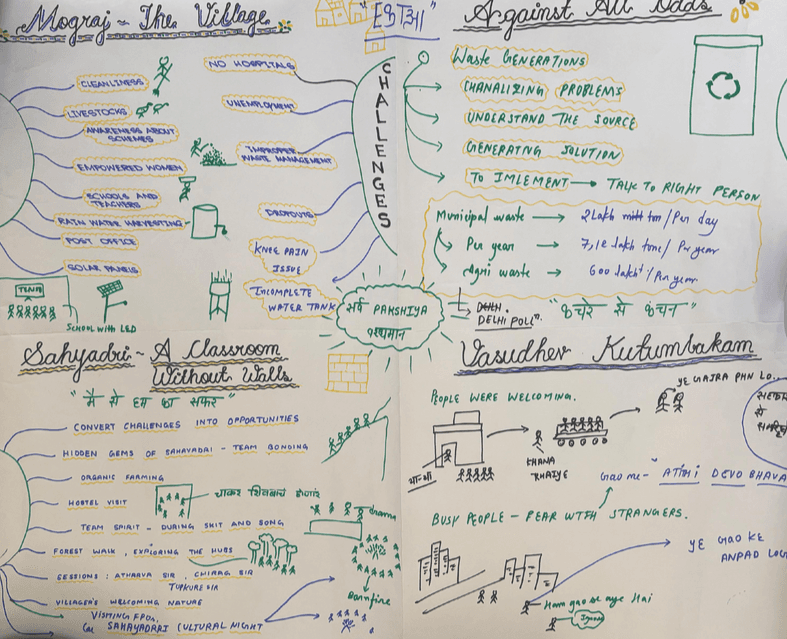 Mograj - The Village
CLEANLINESS
LIVESTOCKS
AWARENESS ABOUT
SCHEMES
EMPOWERED WOMEN
SCHOOLS AND
TEACHERS
RAIN WATER HARVESTING
POST OFFICE
SOLAR PANELS
SCHOOL WITH LED
NO HOSPITALS
UNEMPLOYMENT
IMPROPER
WASTE MANAGEMENT
DROPOUTS
KNEE PAIN
ISSUE
INCOMPLETE
WATER TANK
CHALLENGES
Against All Odds
Waste Generations
CHANALIZING PROBLEMS
UNDERSTAND THE SOURCE
GENERATING SOLUTION
TO IMLEMENT → TALK TO RIGHT PERSON
Municipal waste → 2 lakh ton / Per day
Per year → 7,12 lakh tone / Per year
Agri waste → 600 lakh / Per year
DELHI POLLn.
"कचरे से कंचन"
सर्व PAKSHIYA
Sahyadri - A Classroom
Without Walls
"मैं से हम का सफर"
CONVERT CHALLENGES INTO OPPORTUNITIES
HIDDEN GEMS OF SAHAYADRI - TEAM BONDING
ORGANIC FARMING
HOSTEL VISIT
TEAM SPIRIT - DURING SKIT AND SONG
drama
FOREST WALK, EXPLORING THE HUBS
SESSIONS: ATHARVA SIR, CHIRAG SIR
TUPKURE SIR
Bornfire
VILLAGER'S WELCOMING NATURE
VISITING FPOs,
SAHAYADRAI CULTURAL NIGHT
Vasudhev Kutumbakam
PEOPLE WERE WELCOMING.
YE GAJRA PHN LO..
KHANA
KHAIYE
Gao me - "ATITHI DEVO BHAVA
BUSY PEOPLE - FEAR WITH STRANGERS.
YE GAO KE
ANPAD LOG
Ham gao se aye Hai
Ignore